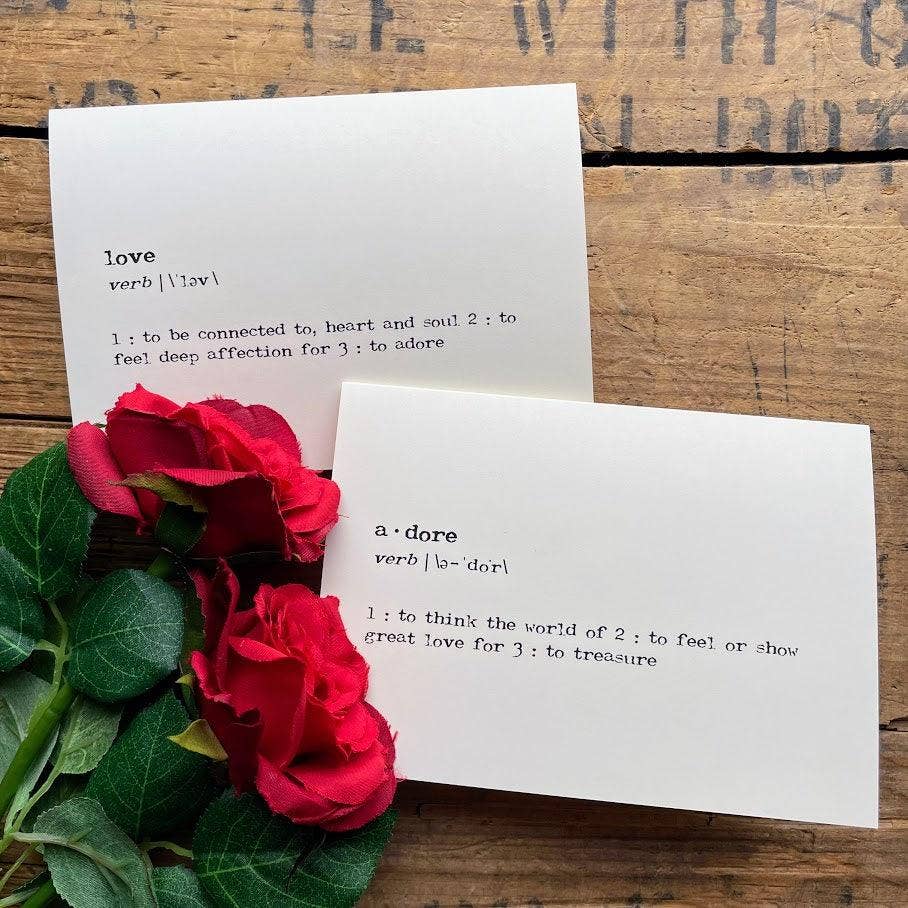 love
verb | \ˈləv\
1 : to be connected to, heart and soul 2 : to
feel deep affection for 3 : to adore
a·dore
verb | \ə-ˈdȯr\
1 : to think the world of 2 : to feel or show
great love for 3 : to treasure